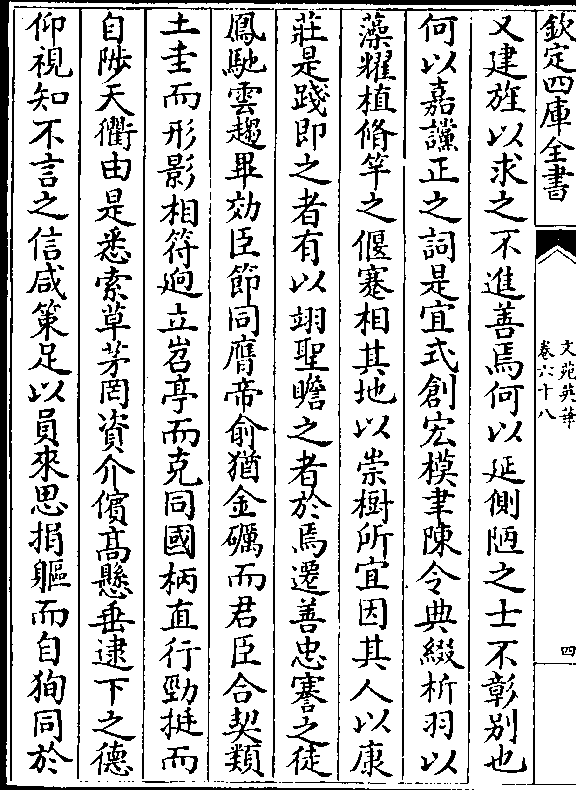 欽定四庫全書
文苑英華
卷六十八
四
又建旌以求之不進善焉何以延側陋之士不彰別也
何以嘉讜正之詞是宜式創宏模聿陳令典綴析羽以
藻耀植脩竿之偃蹇相其地以崇樹所宜因其人以康
莊是踐即之者有以翊聖瞻之者於焉遷善忠謇之徒
鳳馳雲趨畢効臣節同膺帝俞猶金礪而君臣合契類
土圭而形影相符逈立岧亭而克同國柄直行勁挺而
自陟天衢由是悉索草茅罔資介儐髙懸垂逮下之德
仰視知不言之信咸策足以員來思捐軀而自狥同於